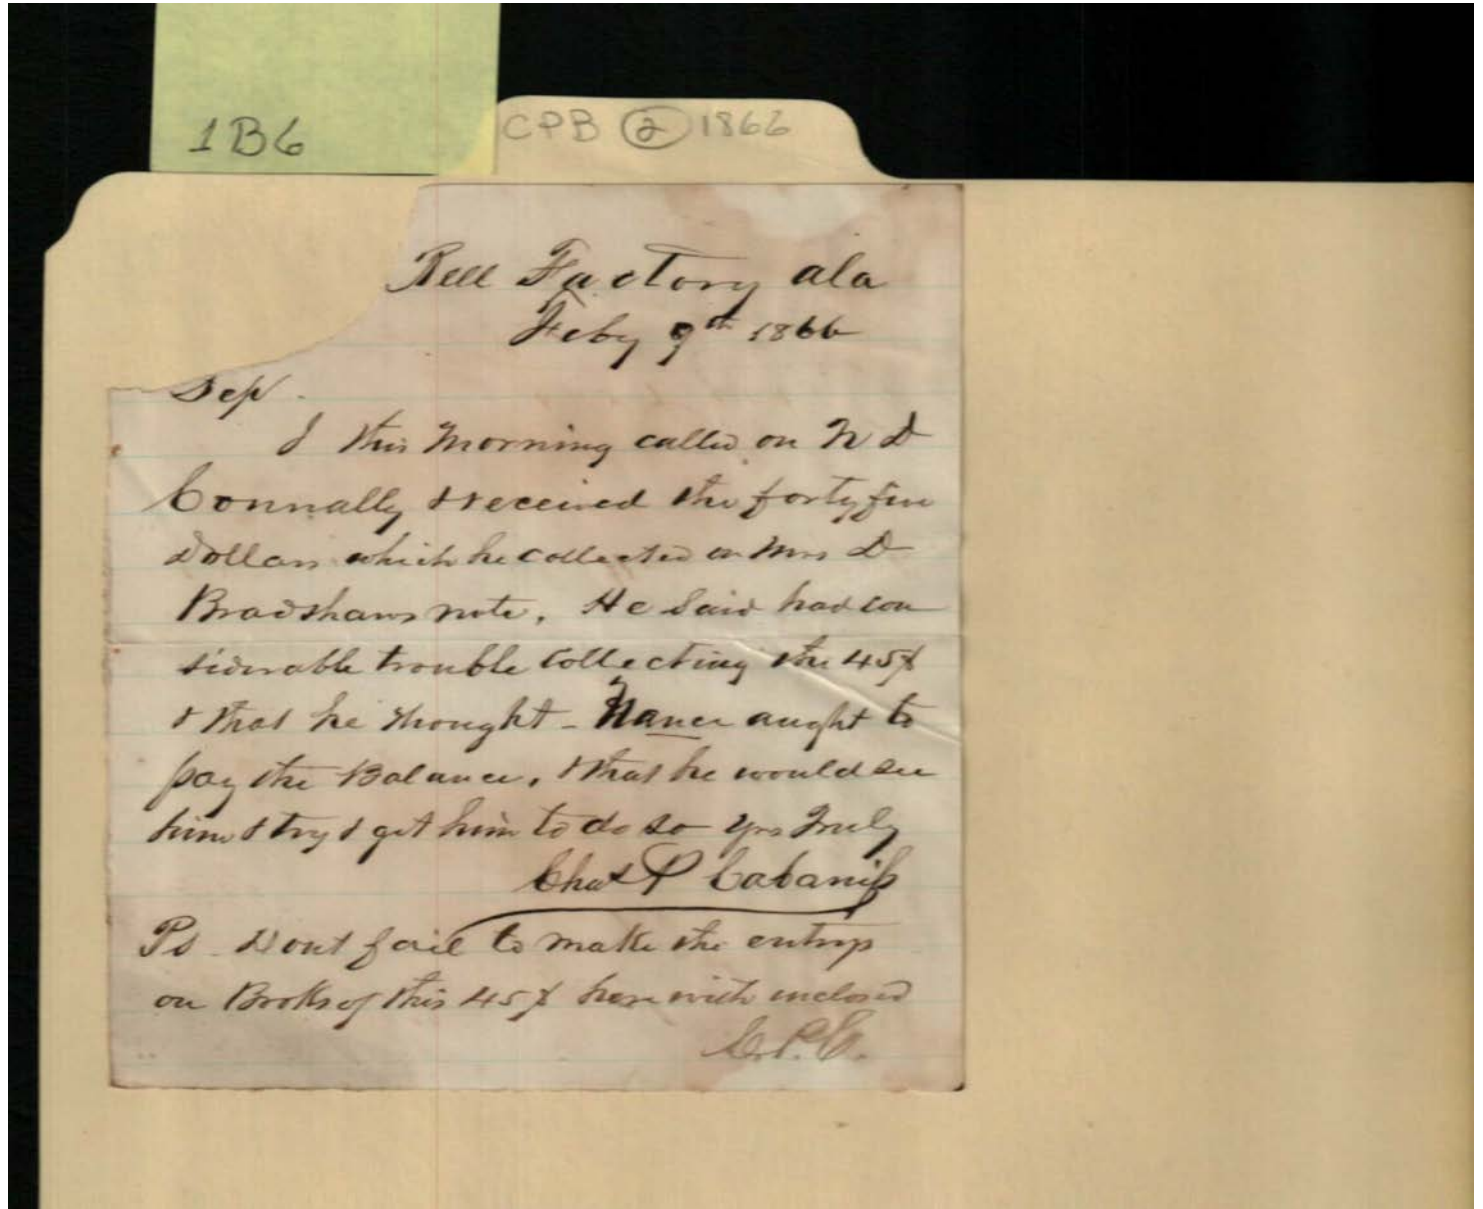 1B6
CPB 2 1866
Bell Factory ala
Feby 9th 1866
Sep
I this Morning called on N D
Connally & received the forty five
Dollars which he collected on Mrs D
Bradshaws note, He Said had con
siderable trouble Collecting the 45$
& that he thought - Nance aught to
pay the Balance, & that he would see
him & try & get him to do so Yrs Truly
Chas P Cabaniss
Ps Dont fail to make the entrys
on Books of this 45$ here with inclosed
C.P.C.